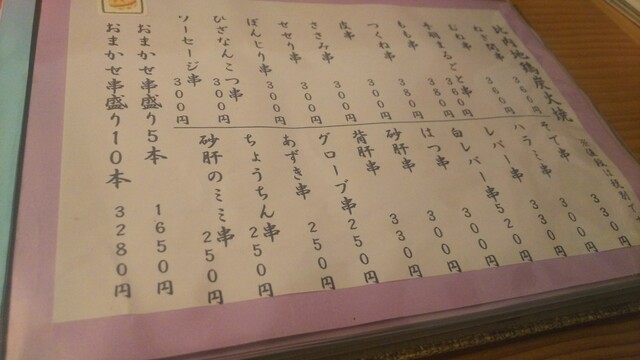 比内地鶏炭火焼
ねぎ間串 360円
むね串 360円
手羽まるごと串 380円
もも串 380円
つくね串 300円
皮串 300円
ささみ串 300円
せせり串 300円
ぼんじり串 300円
ひざなんこつ串 300円
ソーセージ串 300円
そで串 330円
ハラミ串 300円
レバー串 330円
白レバー串 520円
はつ串 300円
砂肝串 300円
背肝串 330円
グローブ串 250円
あずき串 250円
ちょうちん串 250円
砂肝のミミ串 250円
おまかせ串盛り5本 1650円
おまかせ串盛り10本 3280円